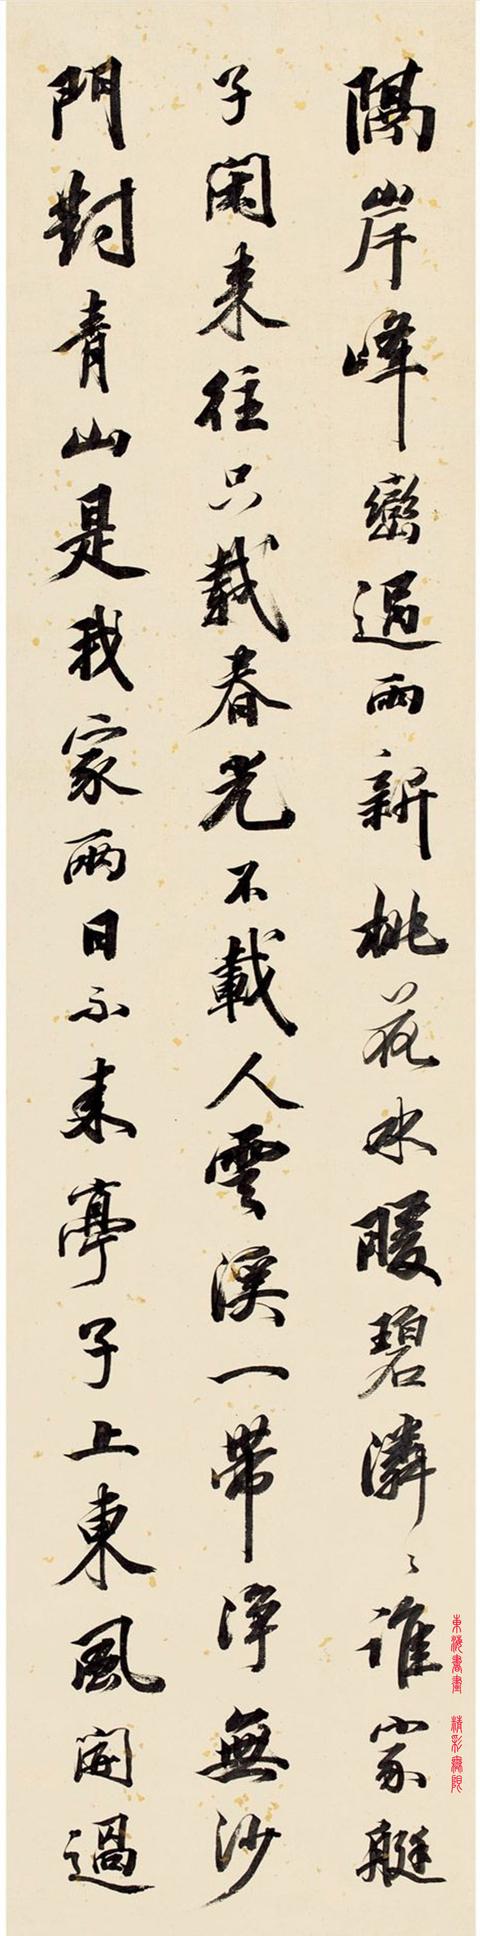 隔岸峰巒過雨新桃花水暖碧潾〻誰家艇
子閑来往只載春光不載人雲溪一帶淨無沙
門對青山是我家兩日不来亭子上東風開過
東海書畫 精彩無限